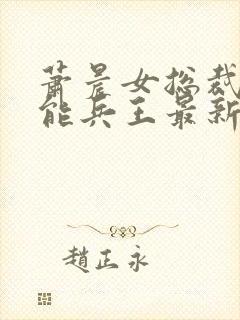 萧晨女总裁
能兵王最新
赵正永